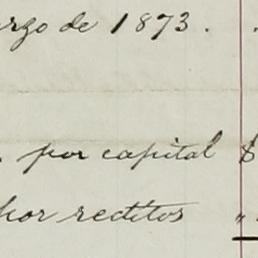 arzo de 1873 . .
. por capital $
por reditos "